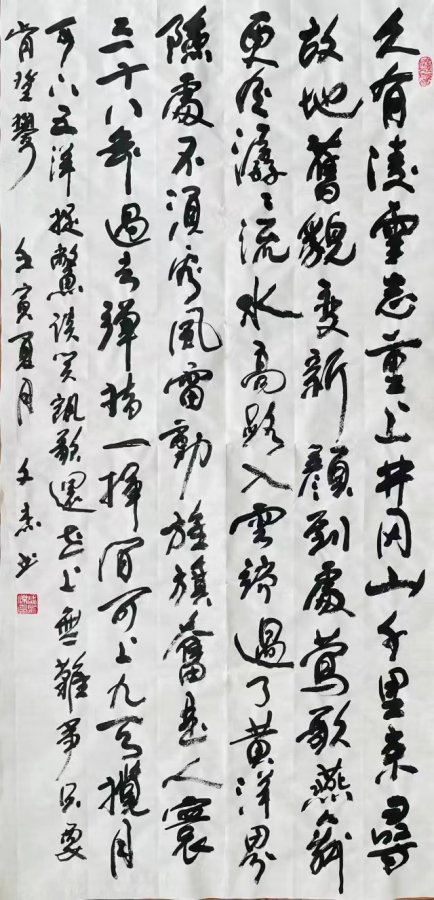 久有凌雲志重上井冈山千里来尋
故地舊貌变新顔到處莺歌燕舞
更有潺々流水高路入雲端過了黄洋界
險處不須看風雷動旌旗奮是人寰
三十八年過去彈指一揮间可上九天攬月
可下五洋捉鱉談笑凱歌還世上無難事只要
肯登攀 壬寅夏月 文杰书